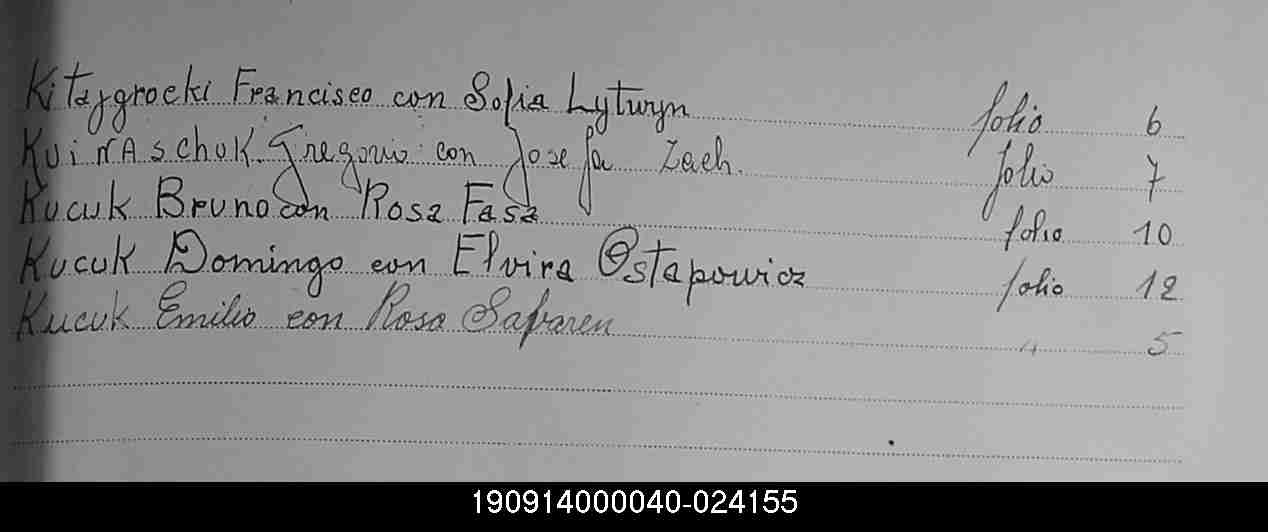 Kitaygrocki Francisco con Sofia Lytwyn folio 6
Gregorio con Josefa Zach. folio 7
Kucuk Bruno con Rosa Fasa folio 10
Kucuk Domingo con Elvira Ostapowicz folio 12
Kucuk Emilio con Rosa Safaren " 5
190914000040-024155